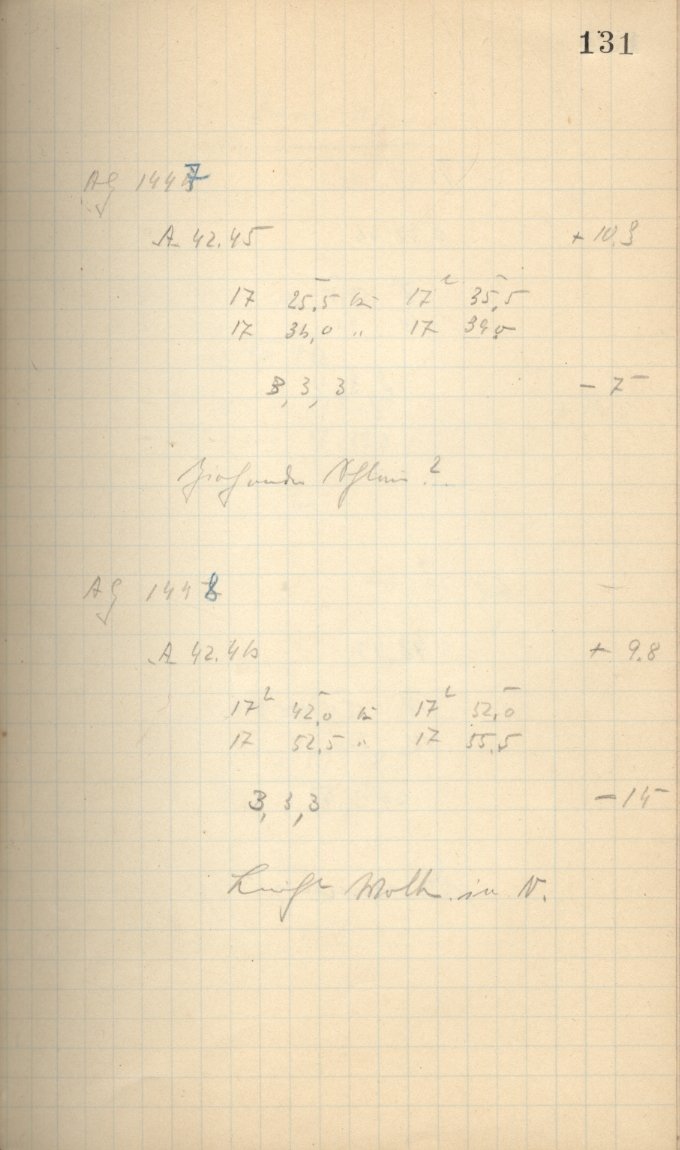 131
AG 1447
A 42.45 + 10.3
17 25,5 bis 17h 35,5
17 36,0 " 17 39,0
3, 3, 3 - 7
?
AG 1448
A 42.46 + 9.8
17h 42,0 bis 17h 52,0
17 52,5 " 17 55,5
3, 3, 3 - 15
Leichte Wolk. in N.